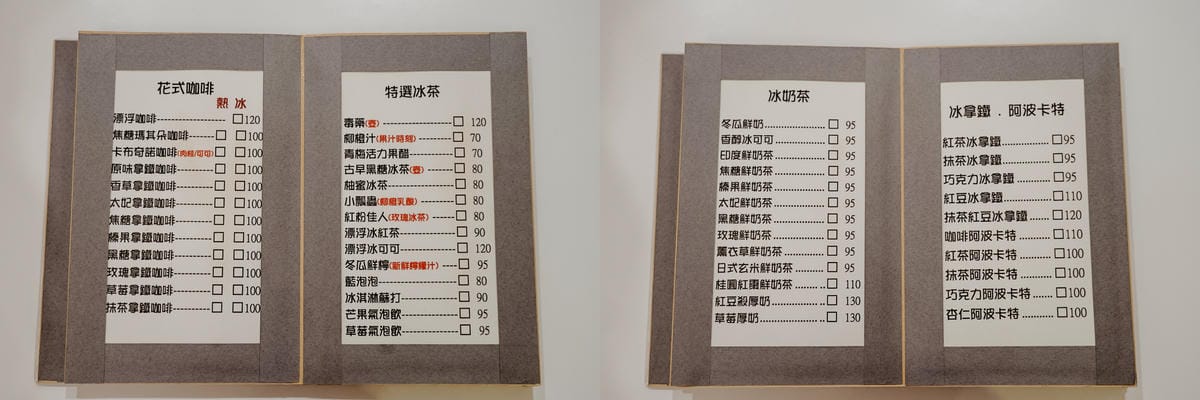 花式咖啡
熱 冰
漂浮咖啡----------------- □120
焦糖瑪其朵咖啡-------□ □100
卡布奇諾咖啡(肉桂/可可)□ □100
原味拿鐵咖啡---------□ □100
香草拿鐵咖啡---------□ □100
太妃拿鐵咖啡---------□ □100
焦糖拿鐵咖啡---------□ □100
榛果拿鐵咖啡---------□ □100
黑糖拿鐵咖啡---------□ □100
玫瑰拿鐵咖啡---------□ □100
草莓拿鐵咖啡---------□ □100
抹茶拿鐵咖啡---------□ □100
特選冰茶
棗藥(壺) ----------------- □ 120
柳橙汁(果汁時刻) -------- □ 70
青梅活力果醋------------ □ 70
古早黑糖冰茶(壺) ------- □ 80
柚蜜冰茶----------------- □ 80
小瓢蟲(柳橙乳酸) ------- □ 80
紅粉佳人(玫瑰冰茶) ----- □ 80
漂浮冰紅茶-------------- □ 90
漂浮冰可可-------------- □ 120
冬瓜鮮檸(新鮮檸檬汁) --- □ 95
藍泡泡------------------- □ 80
冰淇淋蘇打-------------- □ 90
芒果氣泡飲-------------- □ 95
草莓氣泡飲-------------- □ 95
冰奶茶
冬瓜鮮奶.................... □ 95
香醇冰可可................ □ 95
印度鮮奶茶................ □ 95
焦糖鮮奶茶................ □ 95
榛果鮮奶茶................ □ 95
太妃鮮奶茶................ □ 95
黑糖鮮奶茶................ □ 95
玫瑰鮮奶茶................ □ 95
薰衣草鮮奶茶............ □ 95
日式玄米鮮奶茶......... □ 95
桂圓紅棗鮮奶茶......... □ 110
紅豆穀厚奶................ □ 130
草莓厚奶.................... □ 130
冰拿鐵 . 阿波卡特
紅茶冰拿鐵................ □95
抹茶冰拿鐵................ □95
巧克力冰拿鐵............ □95
紅豆冰拿鐵................ □110
抹茶紅豆冰拿鐵........ □120
咖啡阿波卡特............ □110
紅茶阿波卡特............ □100
抹茶阿波卡特............ □100
巧克力阿波卡特........ □100
杏仁阿波卡特............ □100